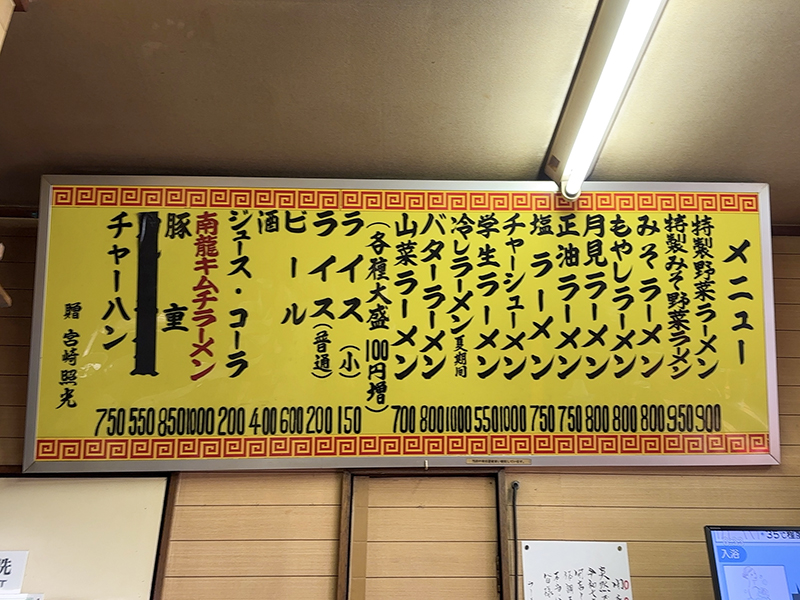 メニュー
特製野菜ラーメン 900
特製みそ野菜ラーメン 950
みそラーメン 800
もやしラーメン 800
月見ラーメン 800
正油ラーメン 750
塩ラーメン 750
チャーシューメン 1000
学生ラーメン 550
冷しラーメン 夏期間 1000
バターラーメン 800
山菜ラーメン 700
(各種大盛100円増)
ライス(小) 150
ライス(普通) 200
ビール 600
酒 400
ジュース・コーラ 200
南龍キムチラーメン 1000
豚重 850
550
チャーハン 750
贈 宮崎照光
洗
入浴